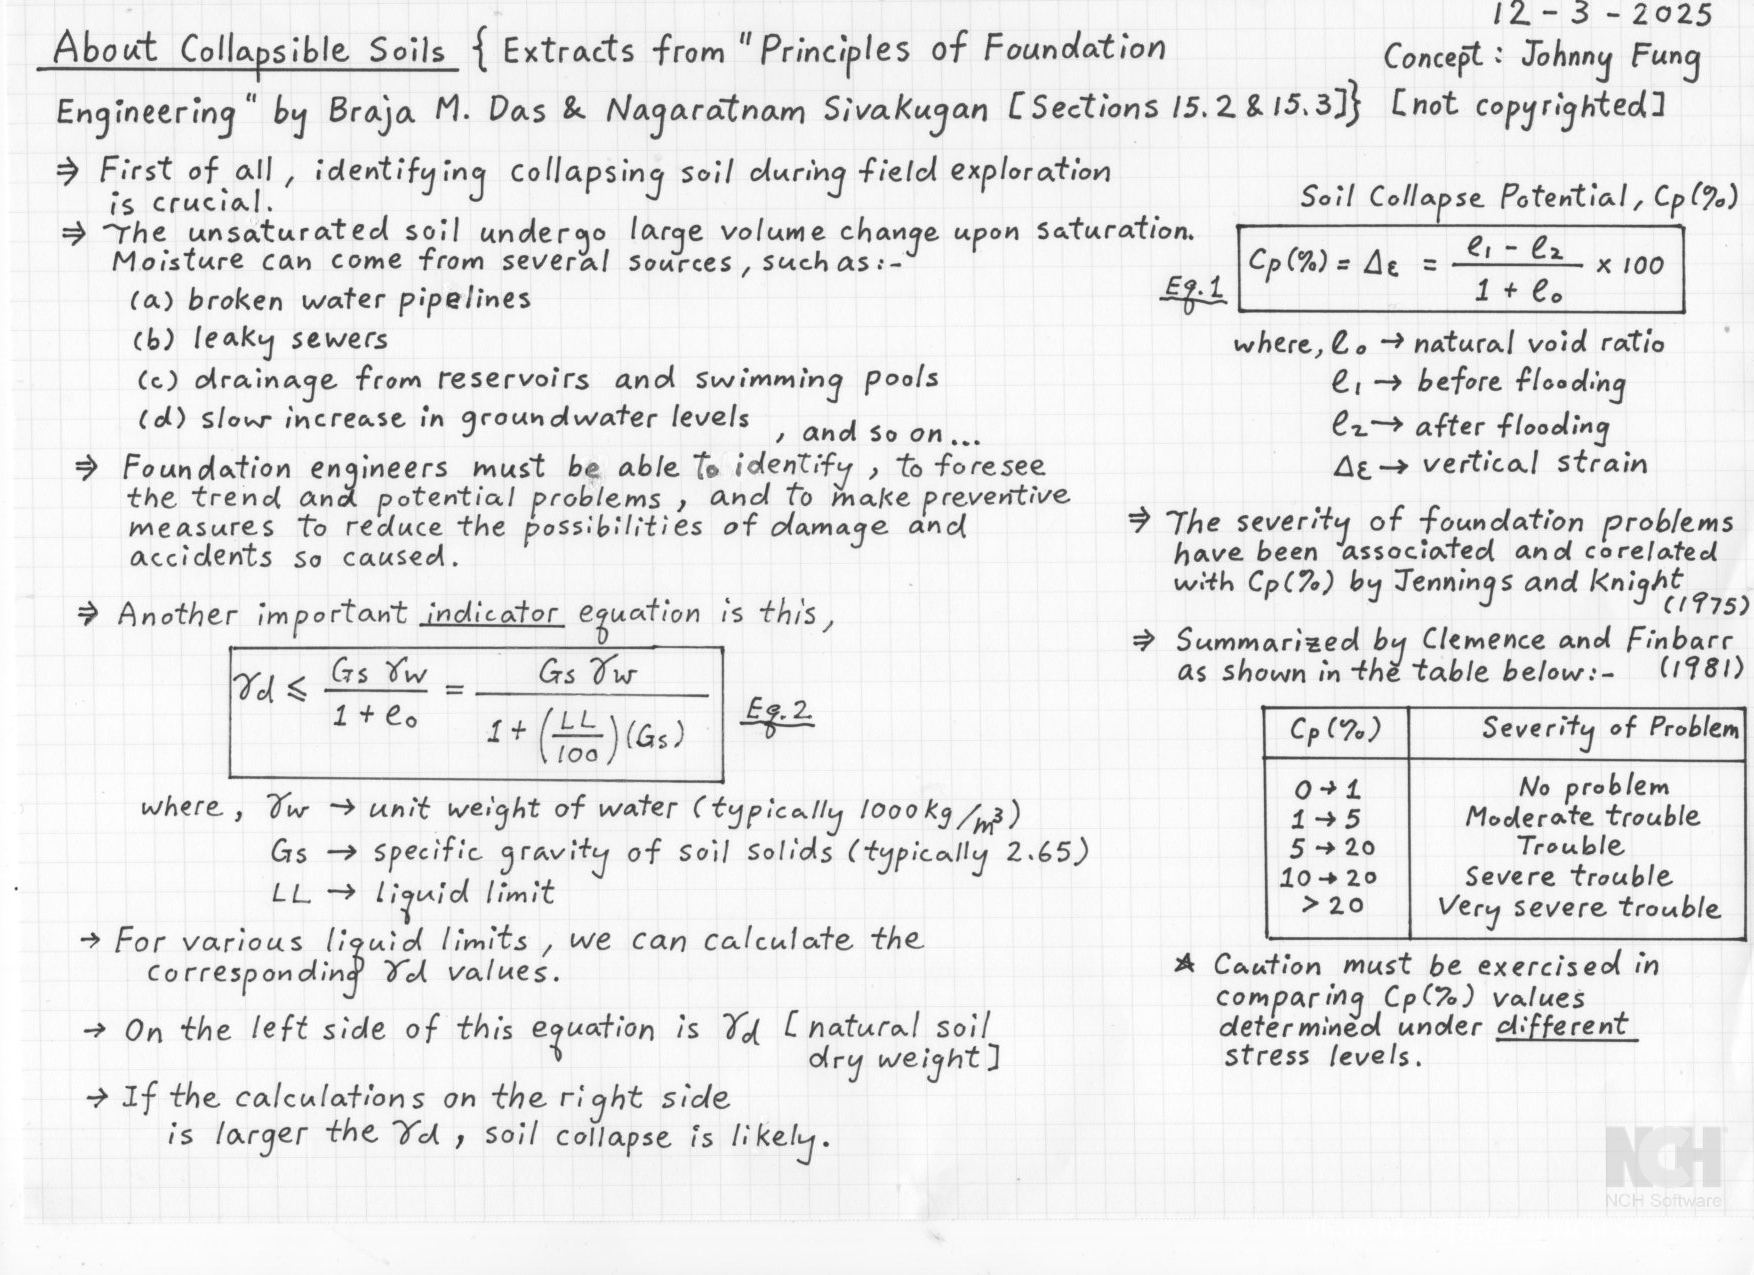 12 - 3 - 2025
About Collapsible Soils { Extracts from "Principles of Foundation
Concept : Johnny Fung
Engineering" by Braja M. Das & Nagaratnam Sivakugan [Sections 15.2 & 15.3]} [not copyrighted]
⇒ First of all, identifying collapsing soil during field exploration
is crucial.
⇒ The unsaturated soil undergo large volume change upon saturation.
Moisture can come from several sources, such as:-
(a) broken water pipelines
(b) leaky sewers
(c) drainage from reservoirs and swimming pools
(d) slow increase in groundwater levels
, and so on...
⇒ Foundation engineers must be able to identify, to foresee
the trend and potential problems, and to make preventive
measures to reduce the possibilities of damage and
accidents so caused.
⇒ Another important indicator equation is this,
γd ≤ Gs γw / 1 + e₀ = Gs γw / 1 + (LL/100)(Gs)
Eq.2
where, γw → unit weight of water (typically 1000 kg/m³)
Gs → specific gravity of soil solids (typically 2.65)
LL → liquid limit
→ For various liquid limits, we can calculate the
corresponding γd values.
→ On the left side of this equation is γd [natural soil
dry weight]
→ If the calculations on the right side
is larger the γd, soil collapse is likely.
Soil Collapse Potential, Cp(%)
Eq.1
Cp(%) = Δε = e₁ - e₂ / 1 + e₀ x 100
where, e₀ → natural void ratio
e₁ → before flooding
e₂ → after flooding
Δε → vertical strain
⇒ The severity of foundation problems
have been associated and corelated
with Cp(%) by Jennings and Knight
(1975)
⇒ Summarized by Clemence and Finbarr
as shown in the table below:- (1981)
Cp(%) Severity of Problem
0 → 1 No problem
1 → 5 Moderate trouble
5 → 20 Trouble
10 → 20 Severe trouble
> 20 Very severe trouble
★ Caution must be exercised in
comparing Cp(%) values
determined under different
stress levels.
NCH
NCH Software